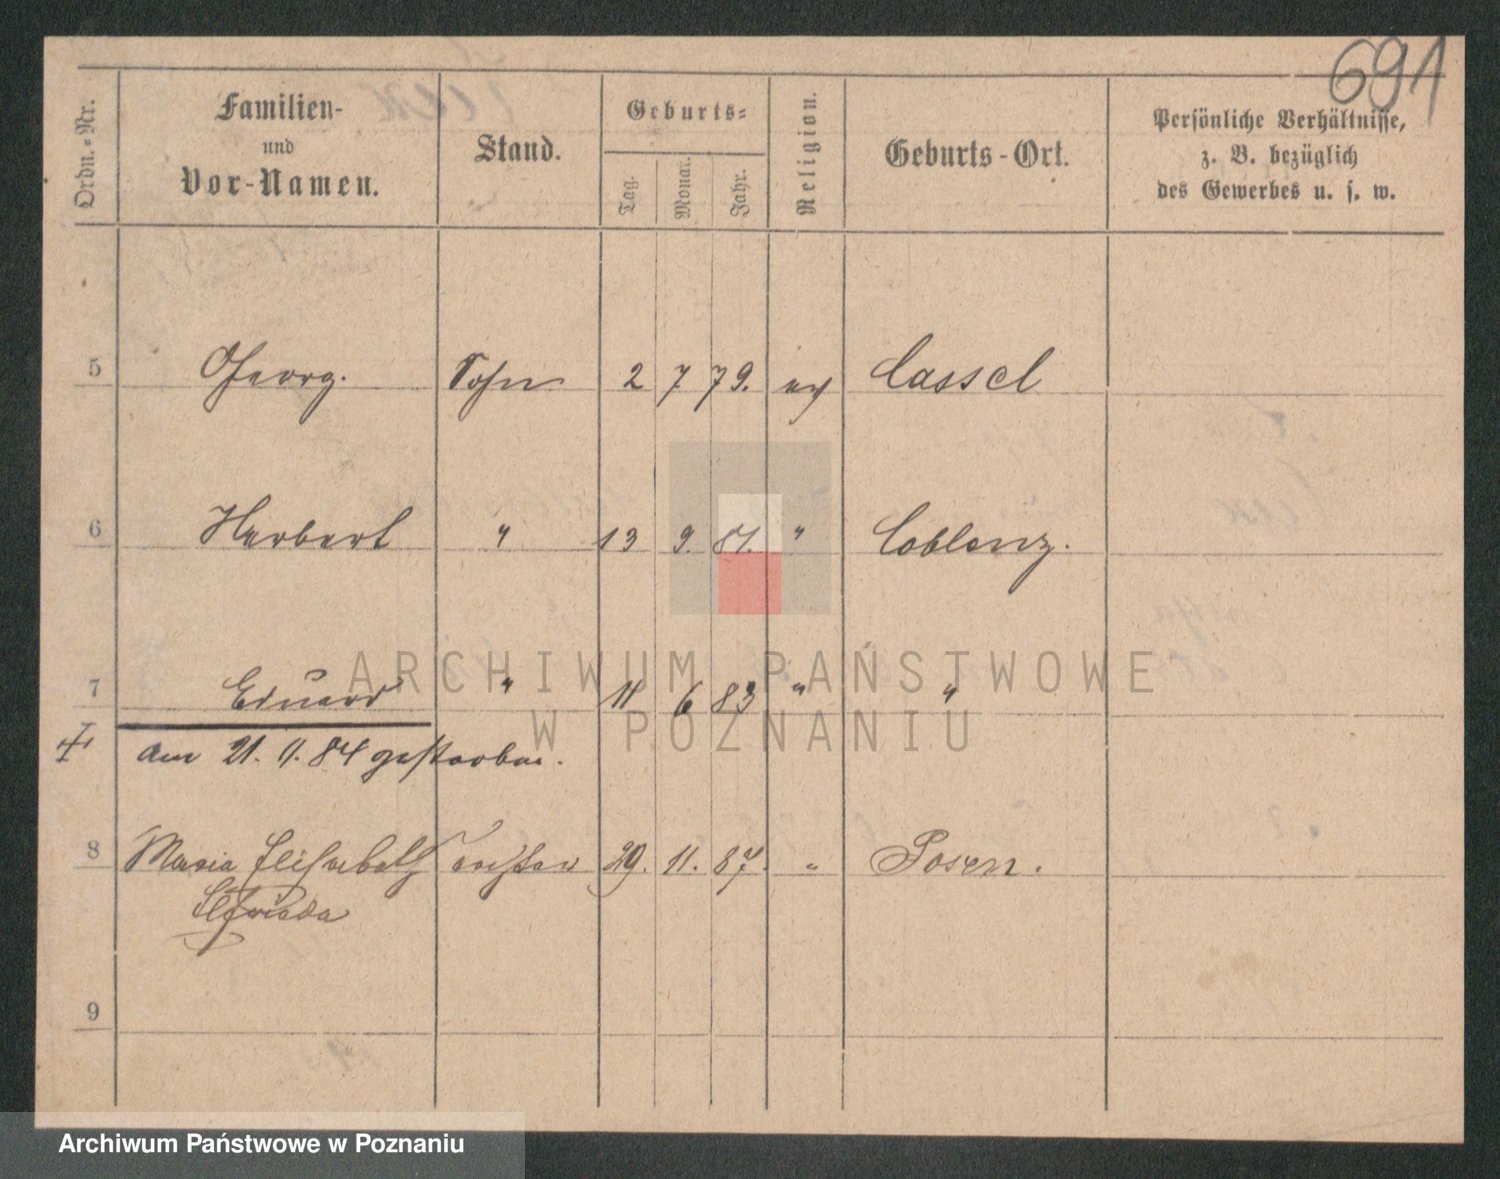 691
Ordn.-Nr. Familien- und Vor-Namen. Stand. Geburts- Tag. Monat. Jahr. Religion. Geburts-Ort. Persönliche Verhältnisse, z. B. bezüglich des Gewerbes u. s. w.
5 Georg. Sohn 2 7 79. ev Cassel
6 Herbert " 13 9. 81. " Coblenz.
7 Eduard " 11 6 83 " "
am 21. 11. 84 gestorben.
8 Maria Elisabeth Tochter 29. 11. 87. " Posen.
Elfrieda
9
ARCHIWUM PAŃSTWOWE
W POZNANIU
Archiwum Państwowe w Poznaniu